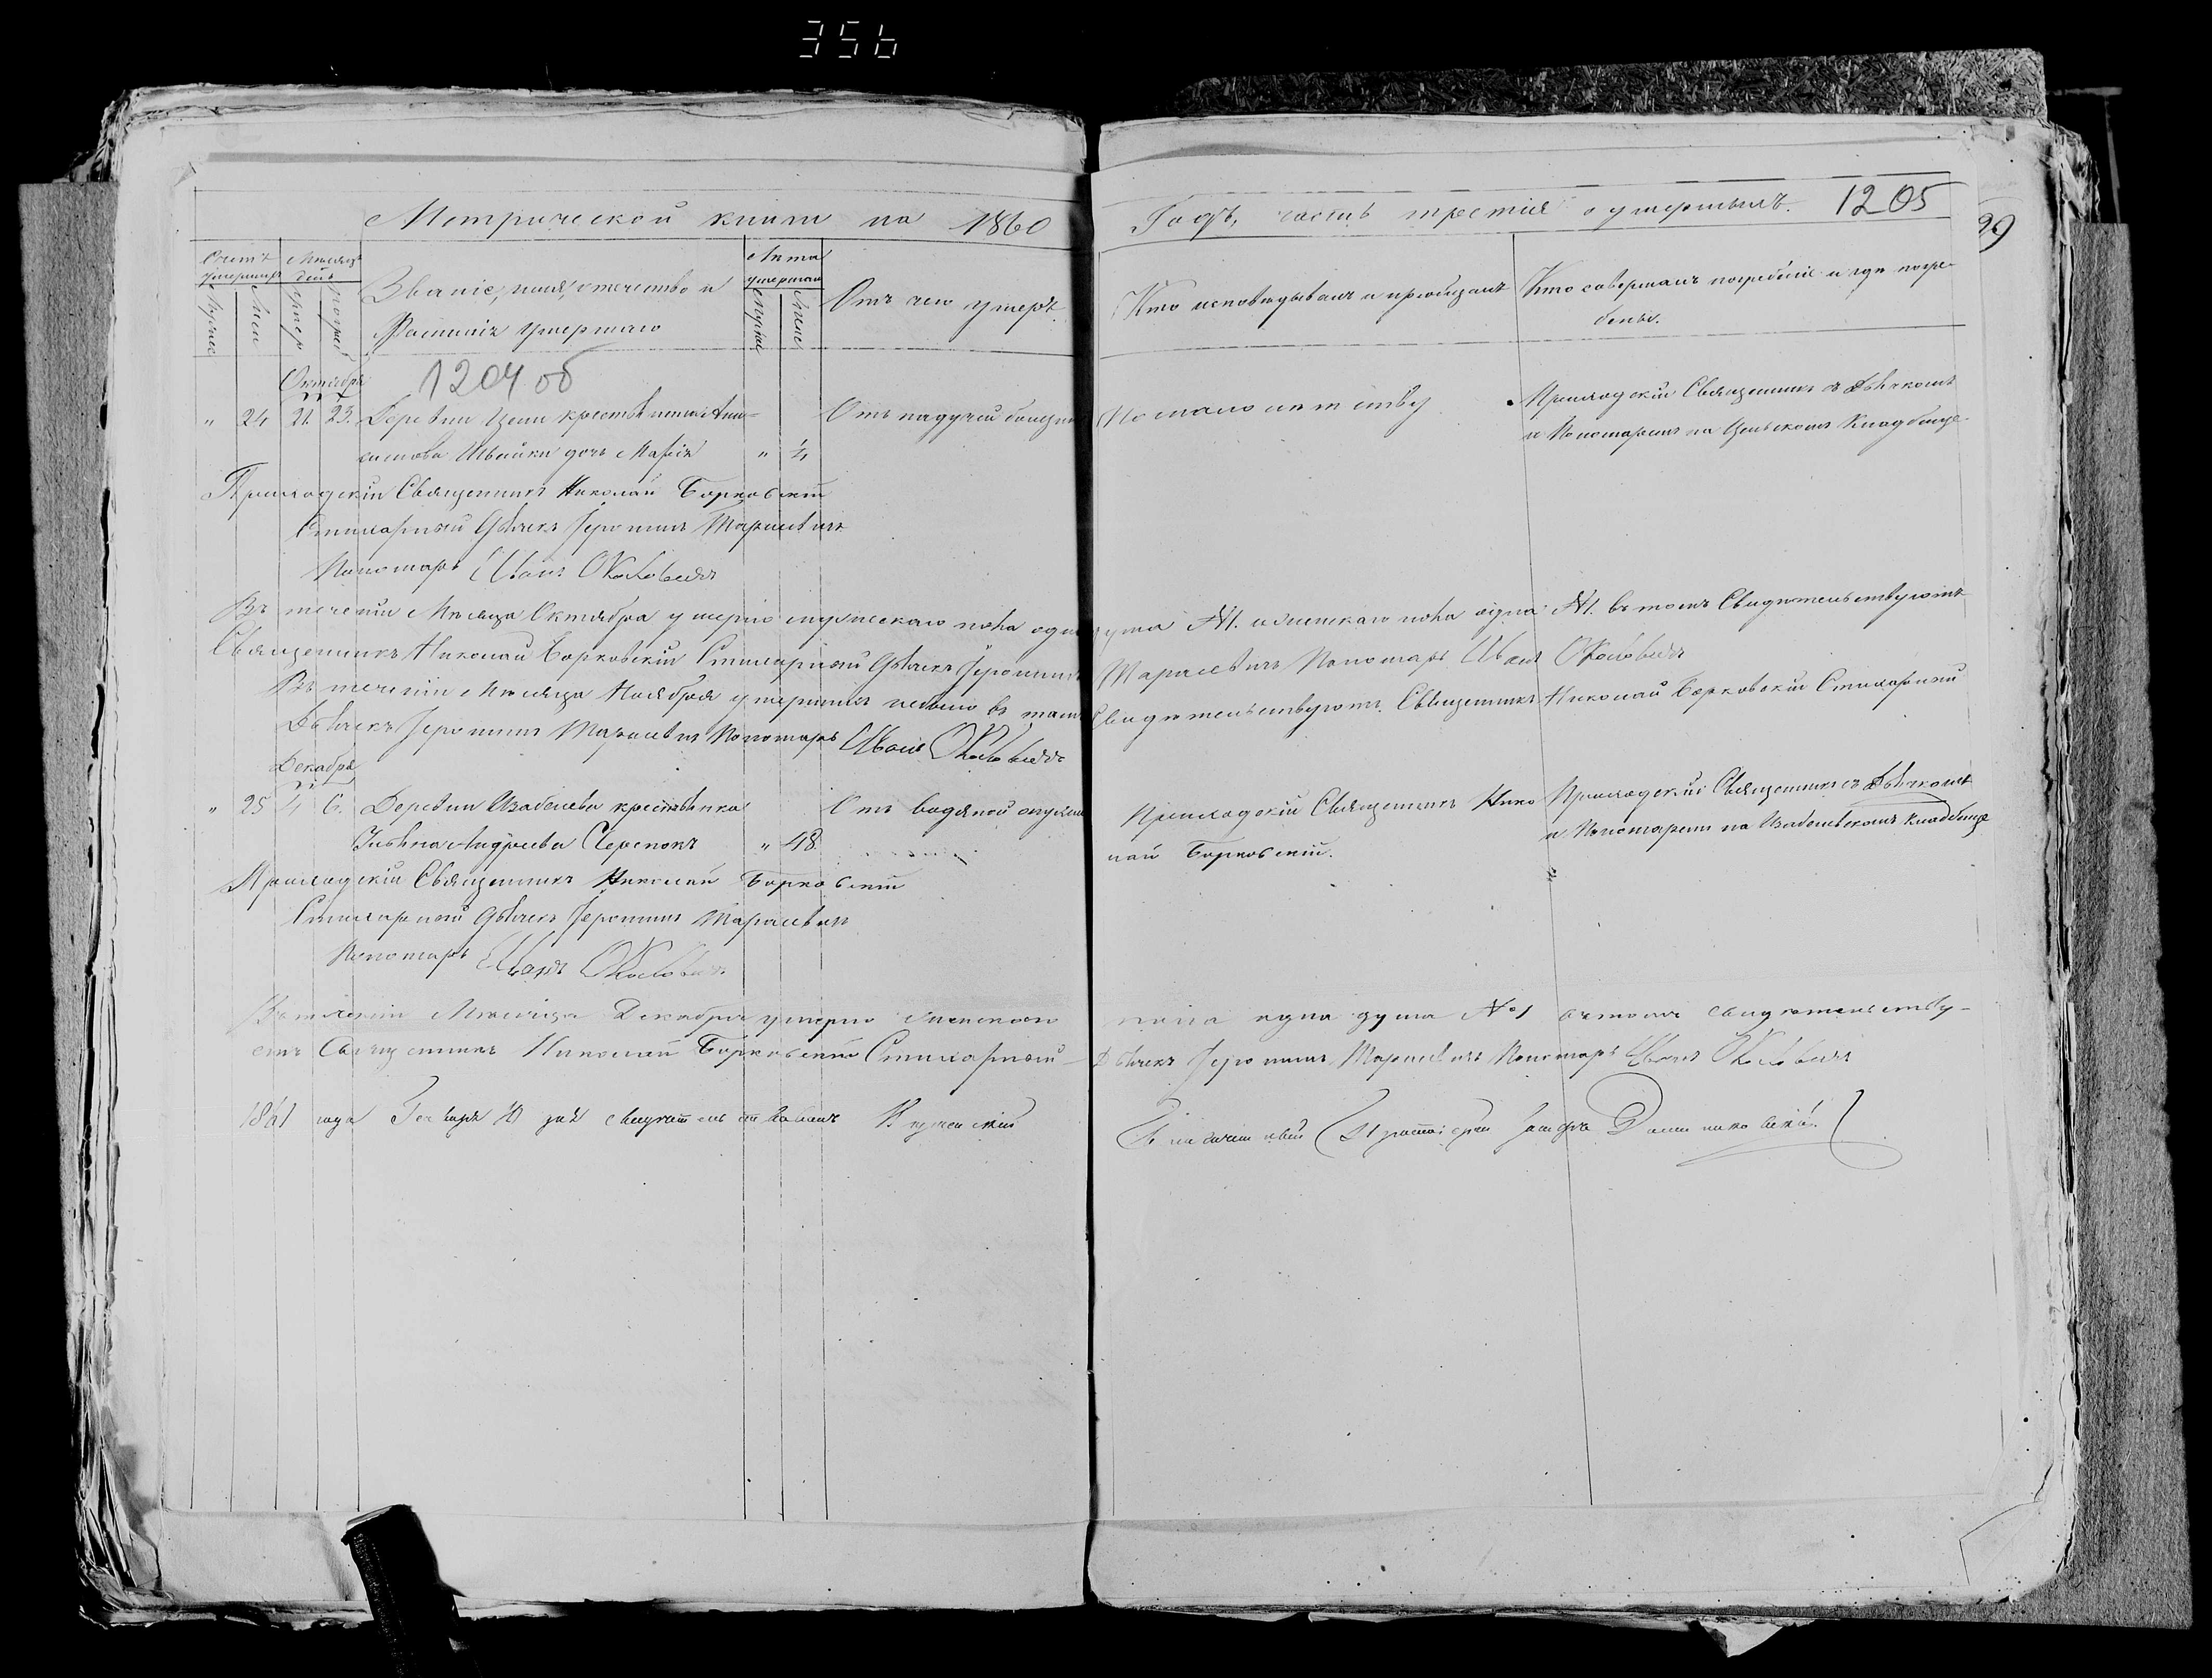 356
Метрической книги на 1860
Годъ, часть третія о умершихъ. 1205
29
Счетъ умершихъ
Мѣсяцъ день
Звание, имя, отчество и
Фамилія умершаго
Лѣта умершаго
Отъ чего умеръ.
Кто исповѣдывалъ и пріобщалъ
Кто совершалъ погребеніе и гдѣ погре-
бены.
Октябрь
1204 об
" 24 21. 23. Деревни Цели крестьянина Ани-
симова Швайки дочь Марія " 4
Отъ падучей болезни
По малолѣтству
Приходскій Священникъ съ Дьячкомъ
и Пономаремъ на Цельскомъ Кладбище
Приходскій Священникъ Николай Борковскій
Стихарный Дьячекъ Іеронимъ Тарасевичъ
Пономарь Иванъ Околовичъ
Въ теченіи Мѣсяца Октября умерло мужескаго пола одна душа №1. и женскаго пола одна №1. въ томъ Свидѣтельствуютъ
Священникъ Николай Борковскій Стихарный Дьячекъ Іеронимъ Тарасевичъ Пономарь Иванъ Околовичъ
Въ теченіи Мѣсяца Ноября умершихъ небыло въ томъ Свидѣтельствуютъ. Священникъ Николай Борковскій Стихарный
Дьячекъ Іеронимъ Тарасевичъ Пономарь Иванъ Околовичъ
Декабрь
" 25 4 6. Деревни Изабелева крестьянка
Андреева Черепокъ " 48.
Отъ водяной опухоли
Приходскій Священникъ Нико
лай Борковскій.
Приходскій Священникъ съ Дьячкомъ
и Пономаремъ на Изабельскомъ Кладбище
Приходскій Священникъ Николай Борковскій
Стихарный Дьячекъ Іеронимъ Тарасевичъ
Пономарь Иванъ Околовичъ
Въ теченіи Мѣсяца Декабря умерло женскаго пола одна душа №1 въ томъ свидѣтельству-
етъ Священникъ Николай Борковскій Стихарный Дьячекъ Іеронимъ Тарасевичъ Пономарь Иванъ Околовичъ
1861 года Генваря 10 дня свидѣтельствовалъ